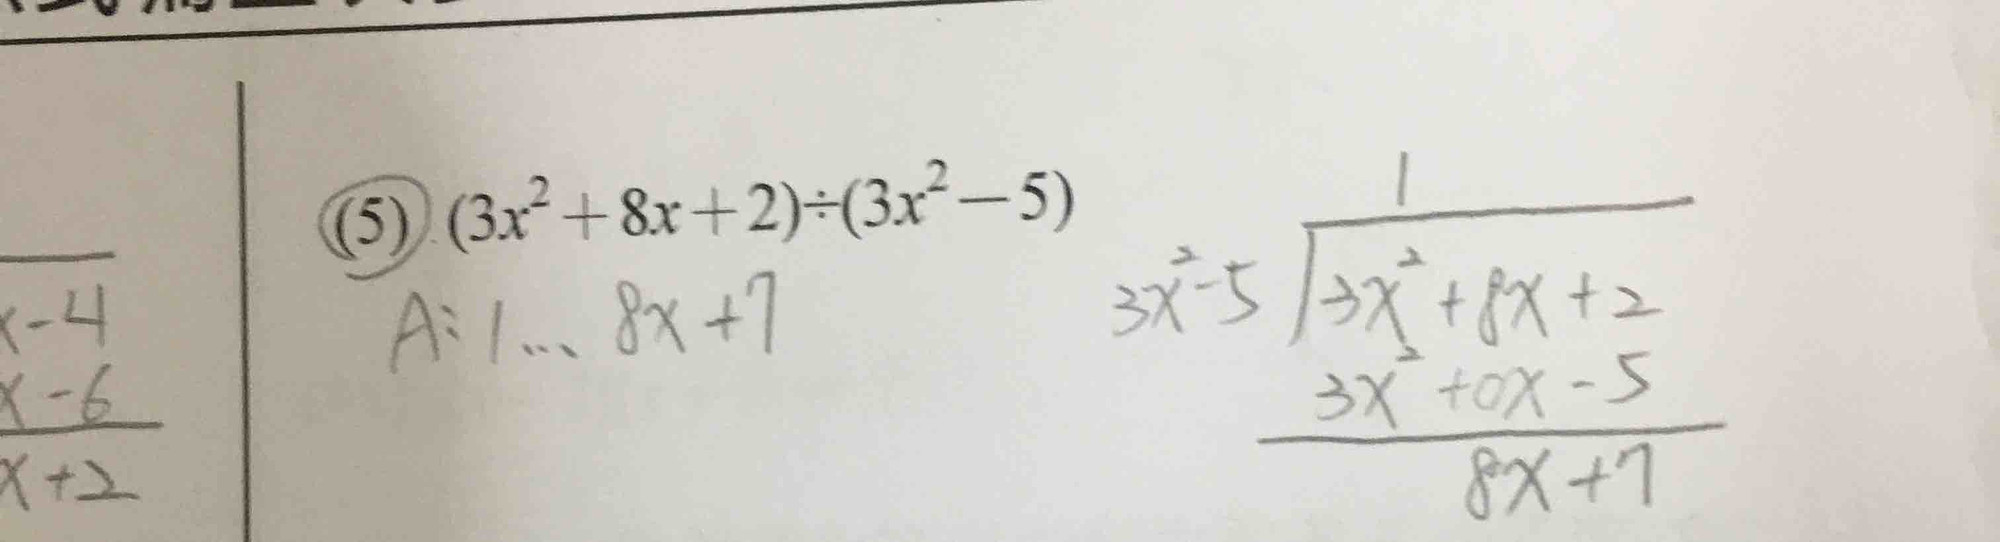 x-4
x-6
x+2
(5) (3x²+8x+2)÷(3x²-5)
A: 1... 8x+7
1
3x²-5 3x²+8x+2
3x²+0x-5
8x+7